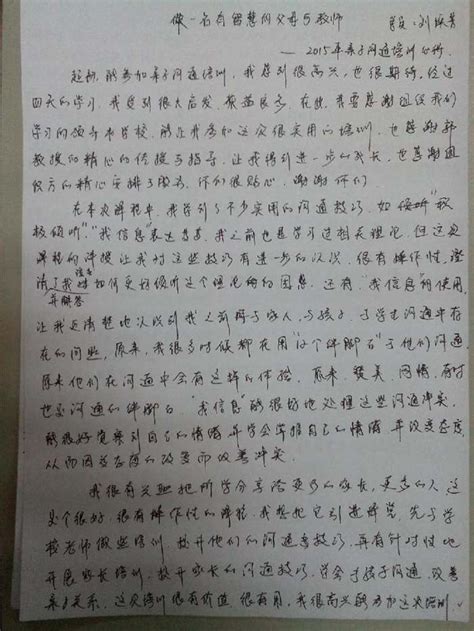 做一名有智慧的父母与教师
——2015年亲子沟通培训心得
起初,能参加亲子沟通培训,我感到很高兴,也很期待,经过
四天的学习,我感到很大启发,获益良多,在此,我要感谢组织我们
学习的领导和学校,能让我参加这次很实用的培训,也感谢郭
教授的精心的传授与指导,让我得到进一步的成长,也感谢团
队方的精心安排与服务,你们很贴心,谢谢你们
在本次课程中,我学到了不少实用的沟通技巧,如倾听"积
极倾听""我信息"表达等等,我之前也是学习过相关理论,但这次
课程的讲授让我对这些技巧有进一步的认识,很有操作性,澄清
了我对如何更好倾听这个理论的困惑,还有"我信息"的使用,
并解答
让我更清楚地认识到我之前与家人,与孩子,与学生沟通中存
在的问题,原来,我很多时候都在用"12个绊脚石"与他们沟通,
原来他们在沟通中会有这样的体验,原来,赞美、同情,有时
也是沟通的绊脚石,"我信息"能很好地处理这些沟通冲突,
能很好觉察到自己的情绪并学会掌握自己的情绪,并改变态度,
从而因着态度的改变而改善冲突
我很有兴趣把所学分享给更多的家长,更多的人,这
是个很好,很有操作性的课程,我想把它引进师党,先与学
校老师做些培训,提升他们的沟通技巧,再有针对性地
开展家长培训,提升家长的沟通技巧,学会与孩子沟通,改善
亲子关系,这次培训很有价值,很有用,我很高兴能参加这次培训